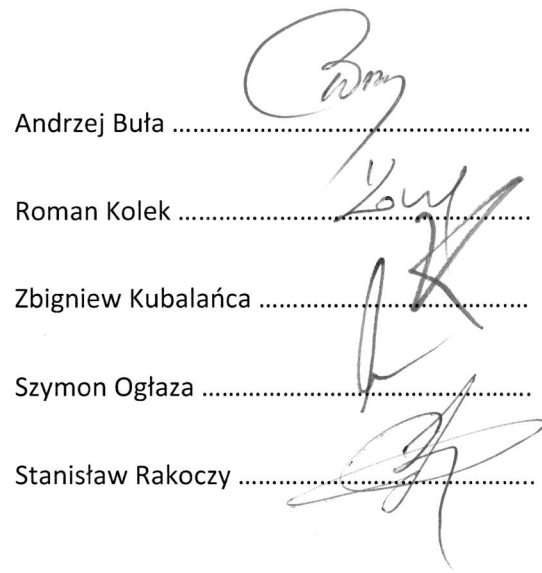 Andrzej Buła ......................................................
Roman Kolek ......................................................
Zbigniew Kubalańca ..........................................
Szymon Ogłaza ..................................................
Stanisław Rakoczy .............................................